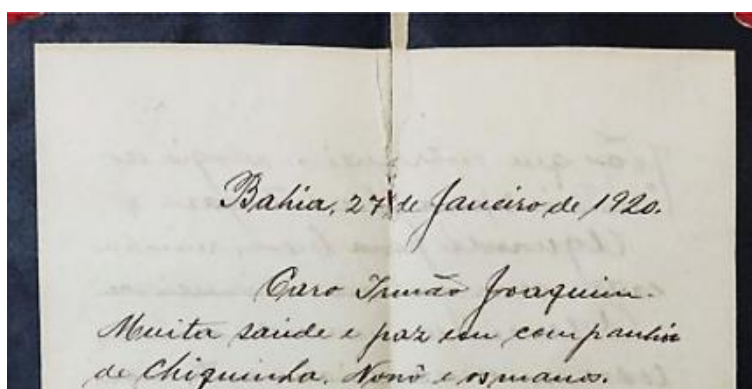 Bahia, 27 de Janeiro de 1920.
Caro Irmão Joaquim.
Muita saude e paz em companhia
de Chiquinha, Nonô e os manos.